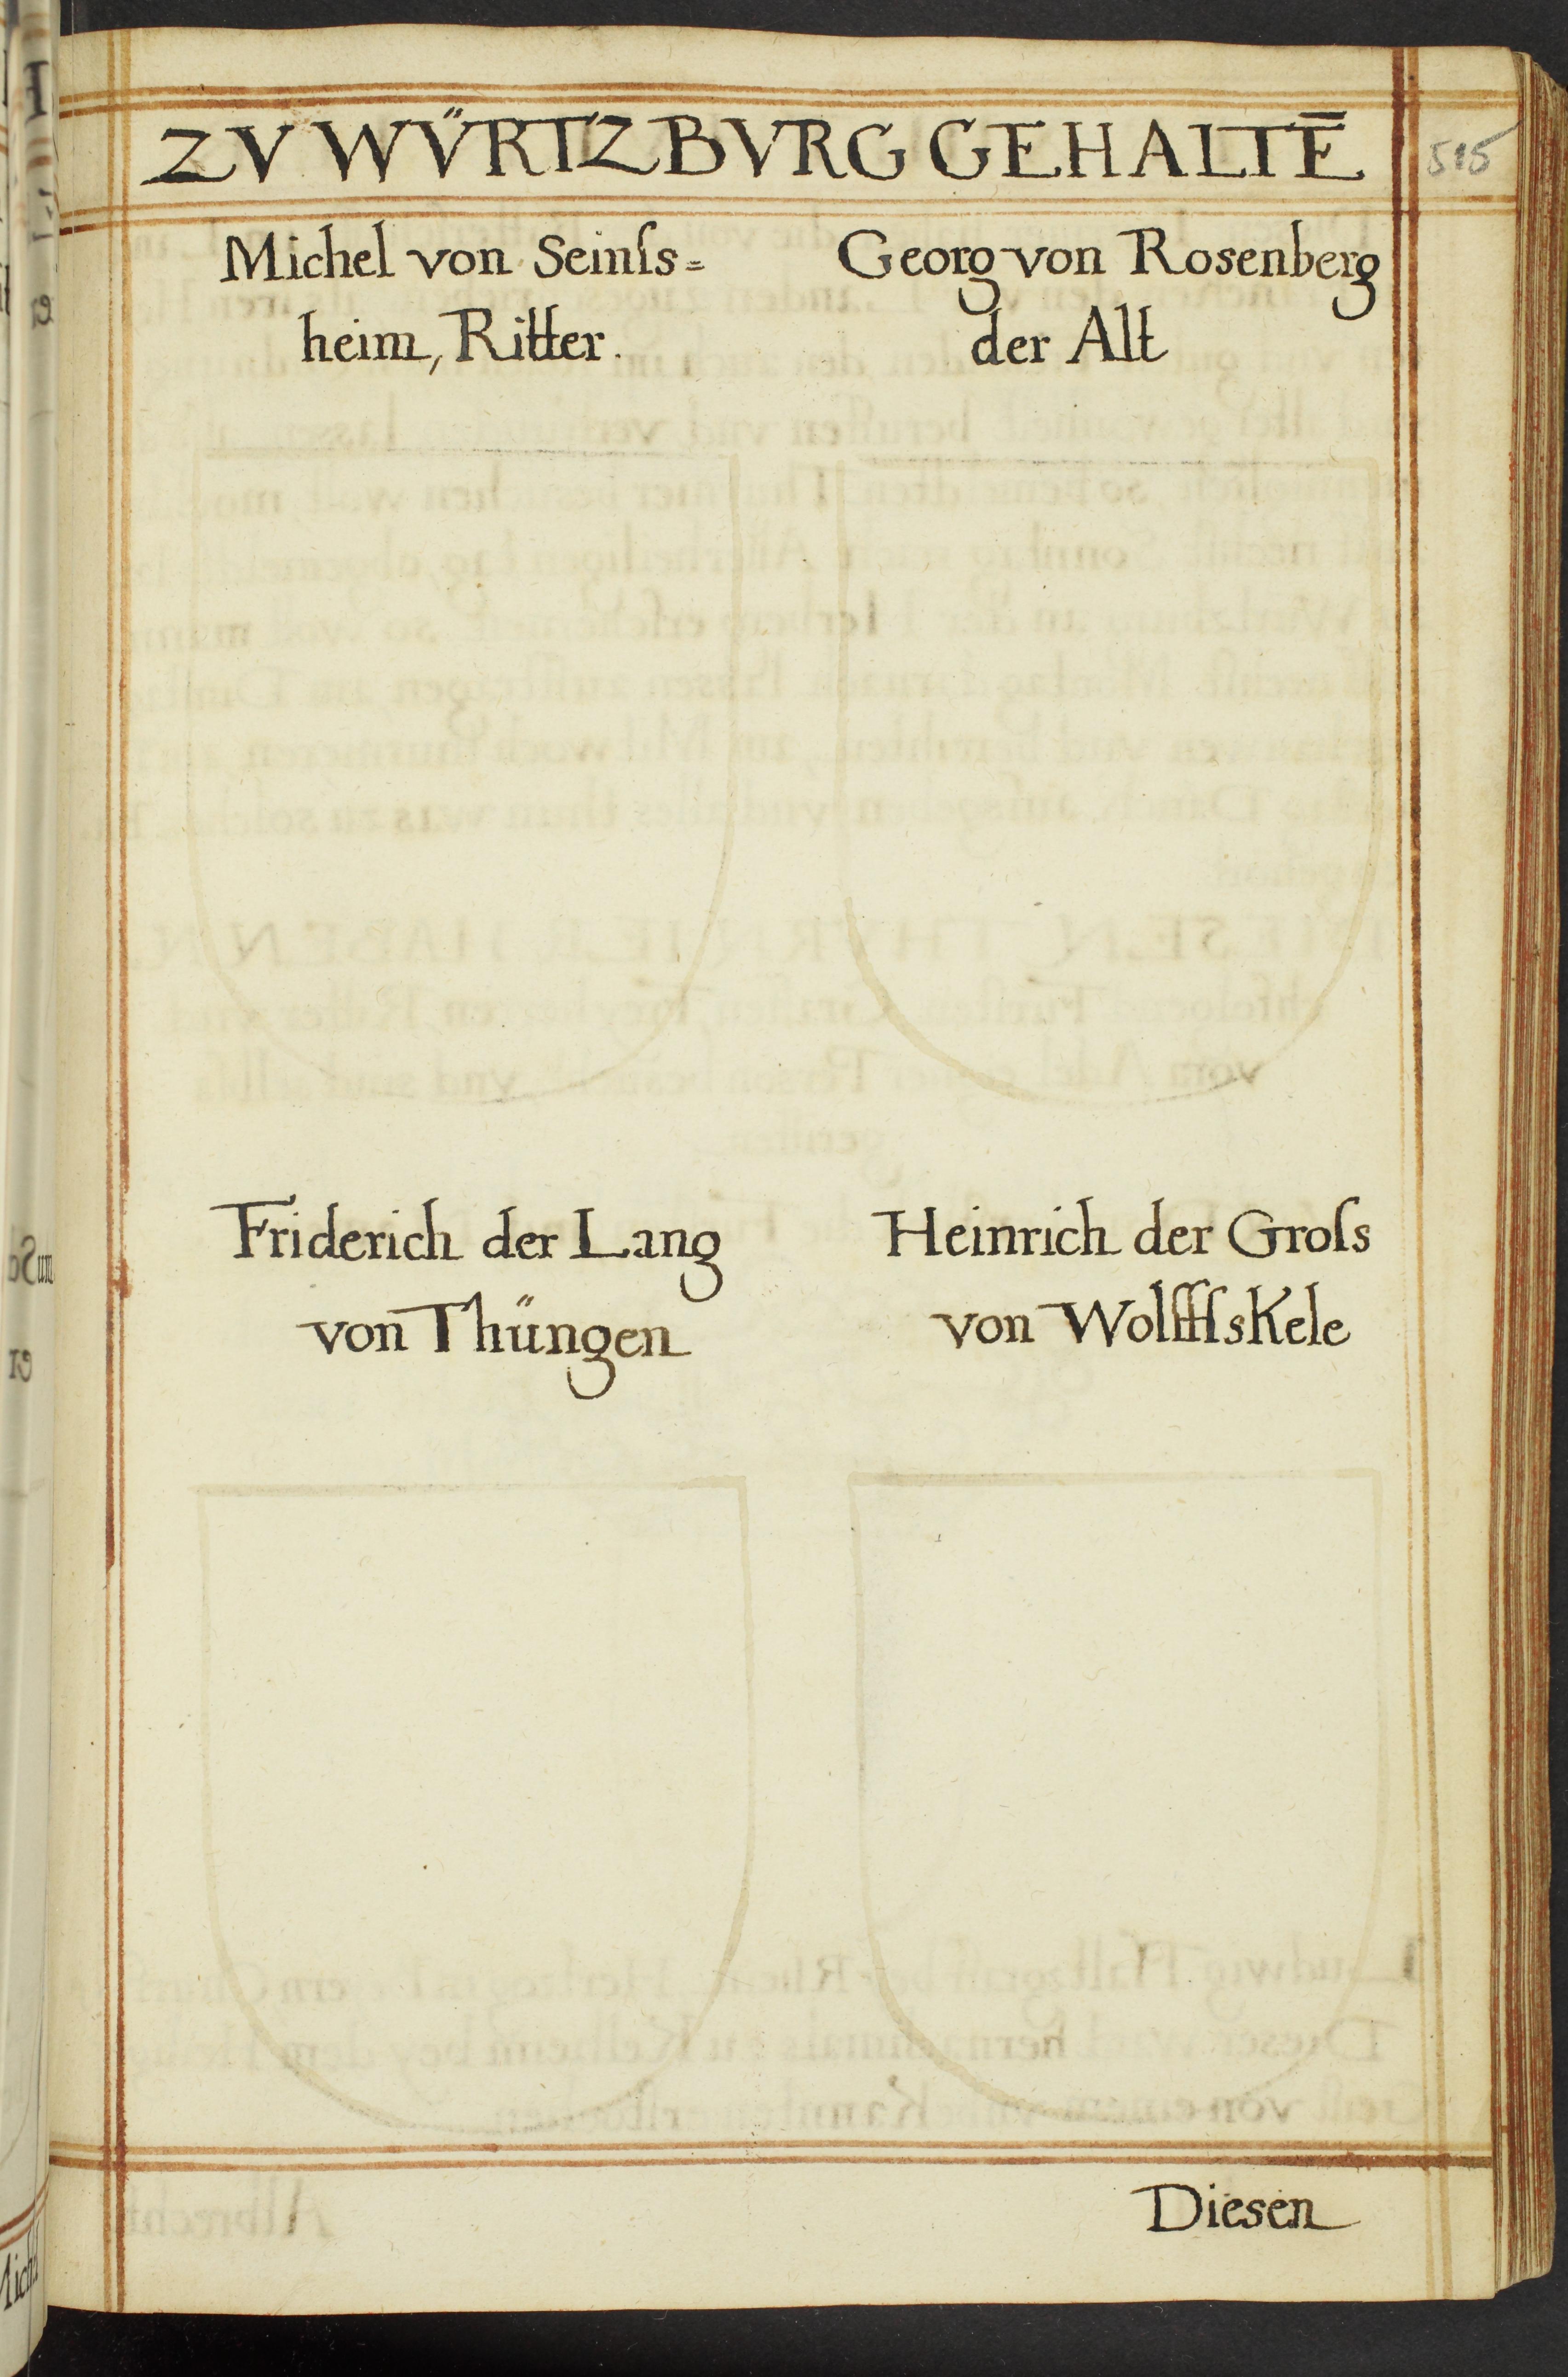 ZV WÜRTZBVRG GEHALTĒ
515
Michel von Seinſs=
heim, Ritter.
Georg von Rosenberg
der Alt
Friderich der Lang
von Thüngen
Heinrich der Groſs
von WolffsKele
Diesen